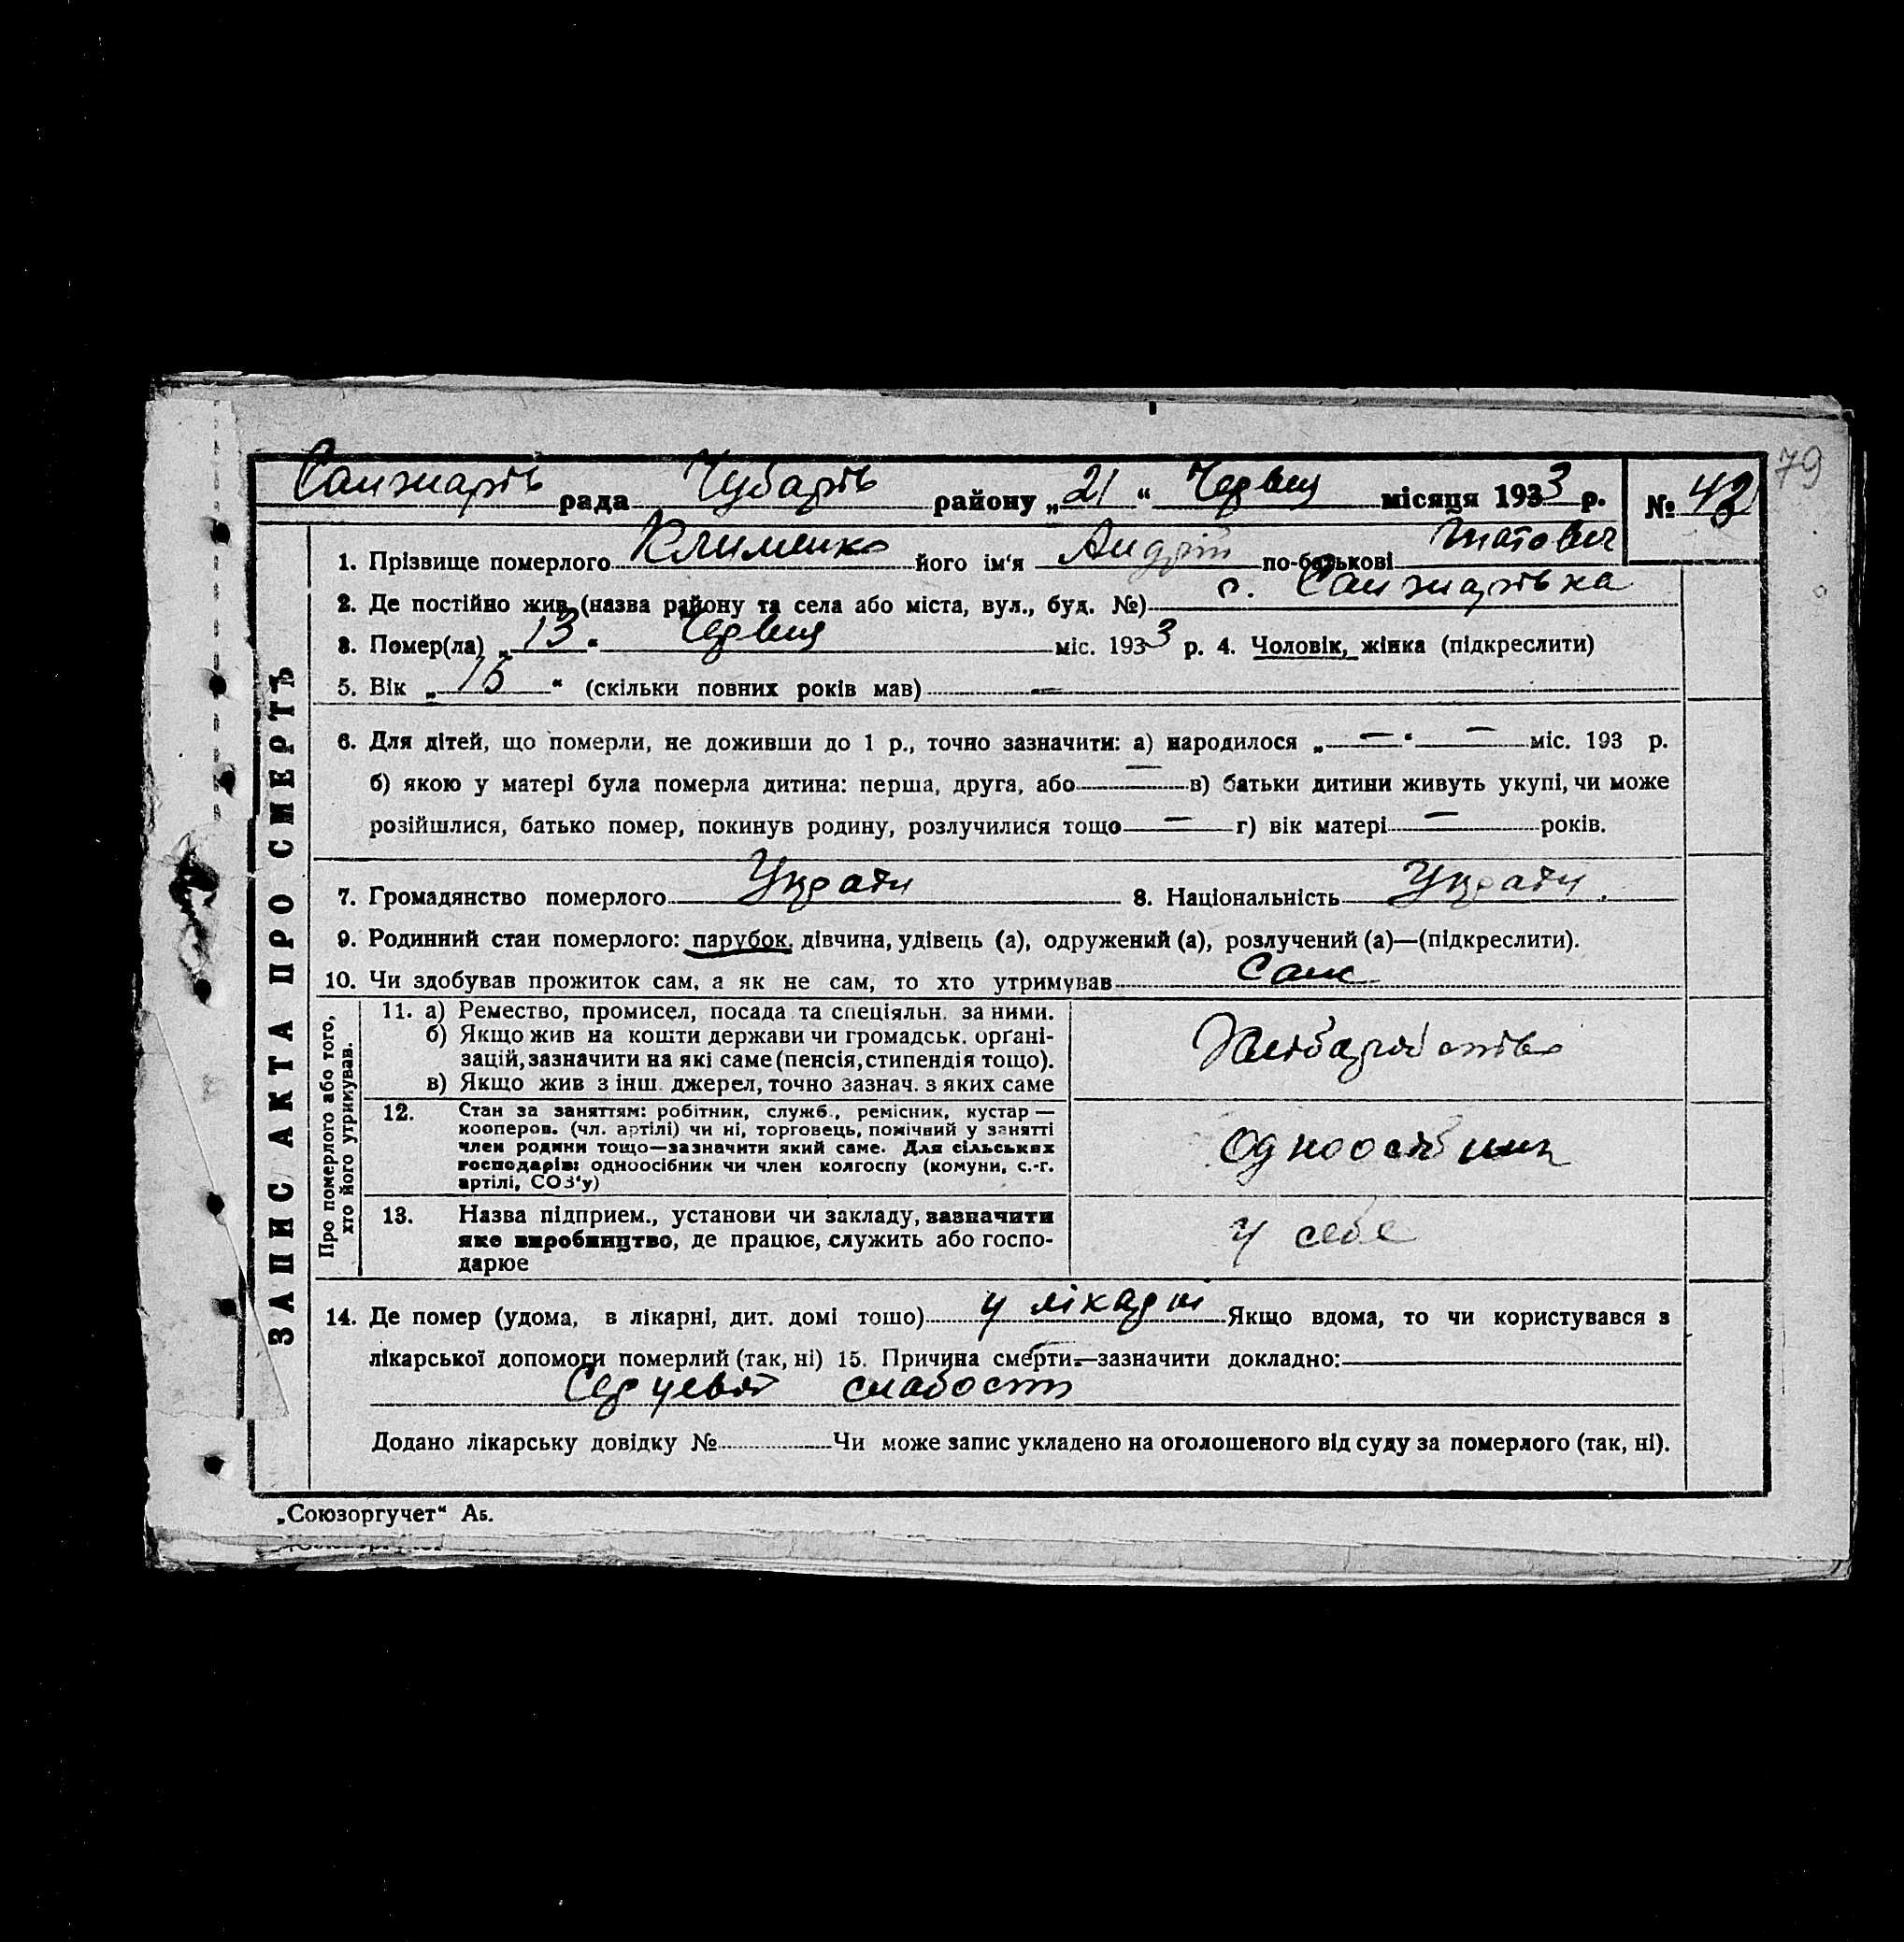 79
Санжарів рада Чубарів району „21“ Червця місяця 1933 р. № 42
1. Прізвище померлого Клименко його ім'я Андрій по-батькові Титович
2. Де постійно жив (назва району та села або міста, вул., буд. №) с. Санжарівка
3. Помер(ла) „13“ Червця міс. 1933 р. 4. Чоловік, жінка (підкреслити)
5. Вік „15“ (скільки повних років мав) —
6. Для дітей, що померли, не доживши до 1 р., точно зазначити: а) народилося „—“ — міс. 193 р.
б) якою у матері була померла дитина: перша, друга, або — в) батьки дитини живуть укупі, чи може
розійшлися, батько помер, покинув родину, розлучилися тощо — г) вік матері — років.
7. Громадянство померлого 8. Національність
9. Родинний стан померлого: парубок, дівчина, удівець (а), одружений (а), розлучений (а)—(підкреслити).
10. Чи здобував прожиток сам, а як не сам, то хто утримував Сам
ЗАПИС АКТА ПРО СМЕРТЬ
Про померлого або того,
хто його утримував.
11. а) Ремество, промисел, посада та спеціяльн. за ними.
б) Якщо жив на кошти держави чи громадськ. орґані-
зацій, зазначити на які саме (пенсія, стипендія тощо).
в) Якщо жив з інш. джерел, точно зазнач. з яких саме
Хліборобство
12. Стан за заняттям: робітник, служб., ремісник, кустар —
кооперов. (чл. артілі) чи ні, торговець, помічний у занятті
член родини тощо—зазначити який саме. Для сільських
господарів: одноосібник чи член колгоспу (комуни, с.-г.
артілі, СОЗ'у)
Одноосібник
13. Назва підприєм., установи чи закладу, зазначити
яке виробництво, де працює, служить або госпо-
дарює
у себе
14. Де помер (удома, в лікарні, дит. домі тошо) у лікарні Якщо вдома, то чи користувався з
лікарської допомоги померлий (так, ні) 15. Причина смерти—зазначити докладно:
слабость
Додано лікарську довідку № Чи може запис укладено на оголошеного від суду за померлого (так, ні).
„Союзоргучет“ Аб.